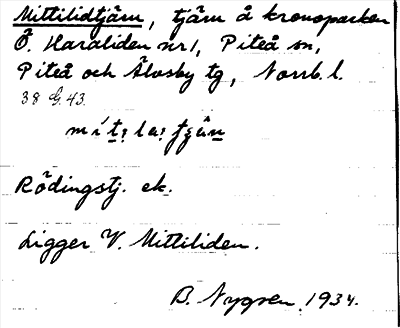 Mittilidtjärn, tjärn å kronoparken
Ö. Haraliden nr 1, Piteå sn,
Piteå och Älvsby tg, Norrb. l.
38 G. 43.
Rödingstj. ek.
Ligger V. Mittiliden.
B. Nygren 1934.